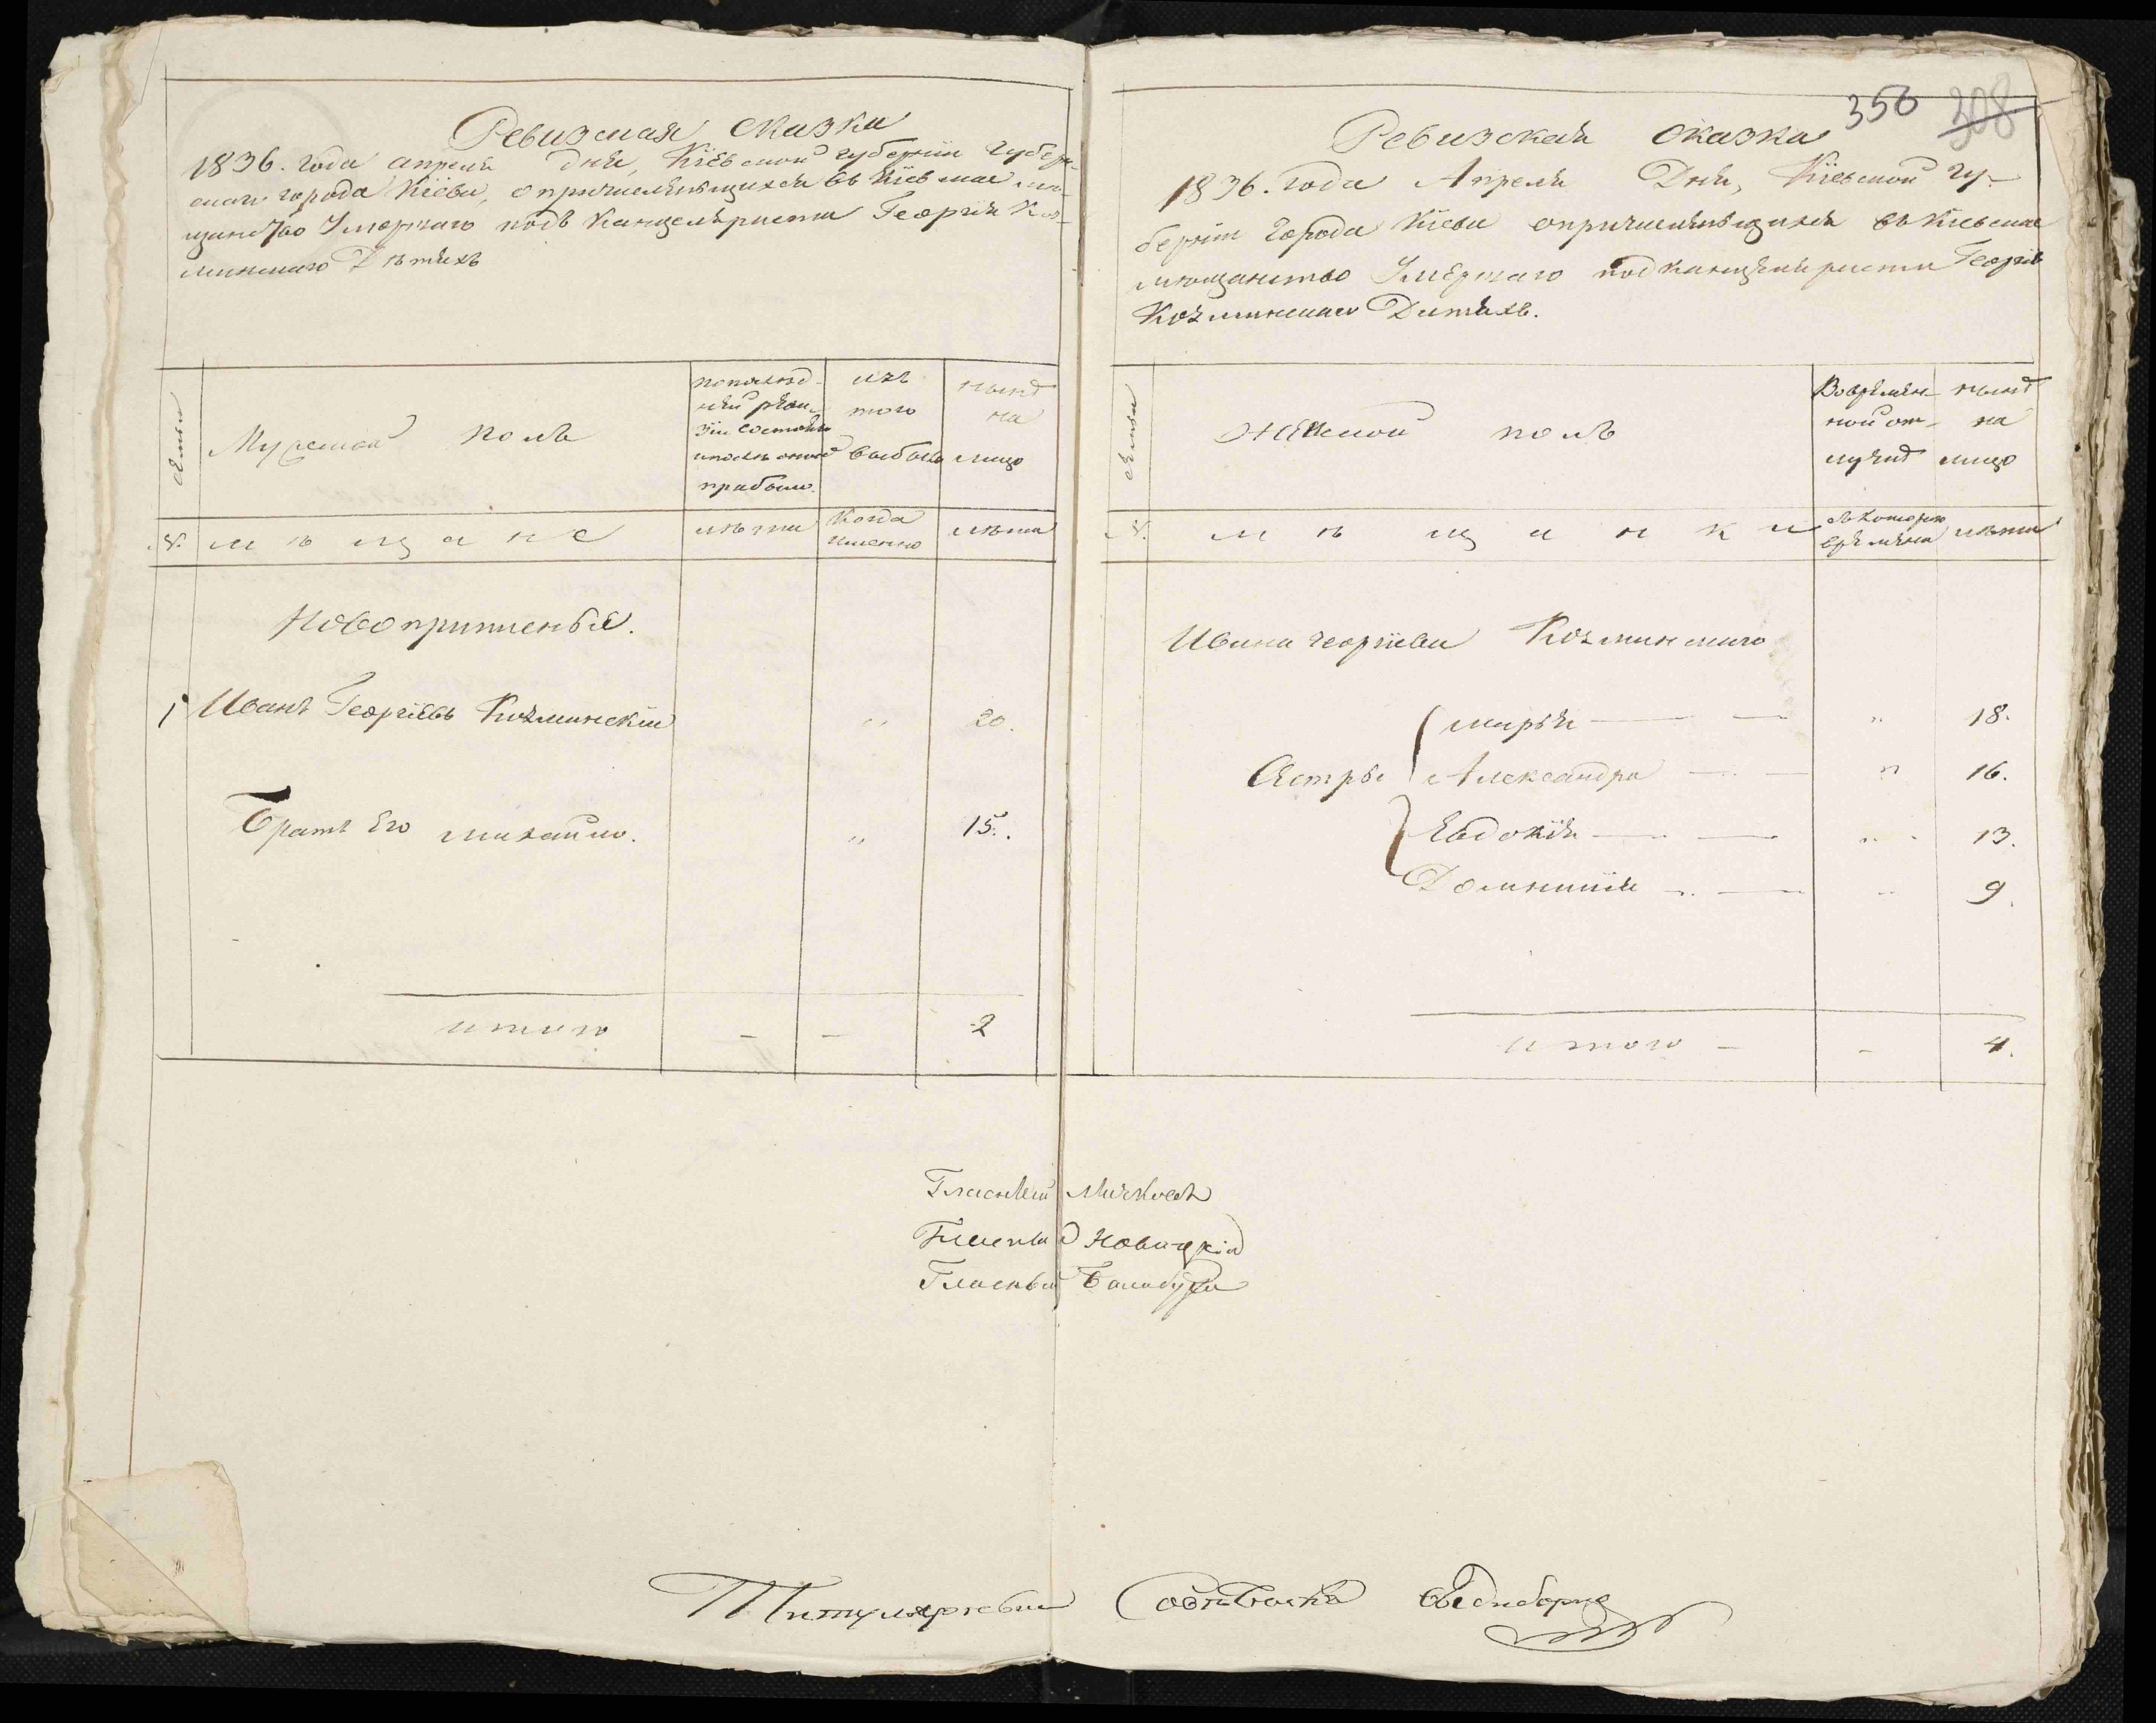 Ревизская сказка
1836. года апреля дня, Кіевской губерніи губерн-
скаго города Кіева, о причислившихся въ Кіевское мѣ-
щанство умершаго подъ канцеляриста Георгія Коз-
минскаго Дѣтяхъ
Семьи
Мужеской полъ
по послѣд-
ней реви-
зіи состояло
и послѣ оной
прибыло.
изъ
того
выбыло
нынѣ
на
лицо
№.
мѣщане
лѣта
Когда
именно
лѣта
Новоприписные.
1 Иванъ Георгіевъ Козминскій " 20.
Братъ Его михайло. " 15.
итого - - 2
350 308
Ревизская сказка
1836. года Апреля Дня, Кіевской гу-
берніи города Кіева о причислившихся въ Кіевское
мещанство Умершаго подканцеляриста Георгія
Козминскаго Дитяхъ.
Семьи
Женской полъ
Во времен-
ной от-
лучкѣ
нынѣ
на
лицо
№.
мѣщанки
съ котораго
времяни
лѣта
Ивана георгіева Козминскаго
марья " 18.
Сестры Александра " 16.
Евдокія " 13.
Домникія " 9.
итого - - 4.
Гласный Мичковъ
Гласный Новицкій
Гласный Балабуха
Титулярный Совѣтникъ